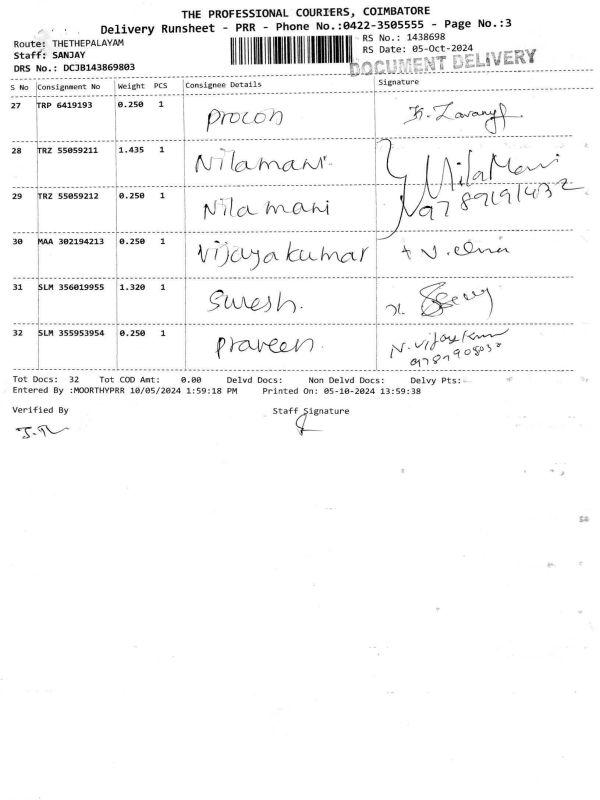 THE PROFESSIONAL COURIERS, COIMBATORE
Delivery Runsheet - PRR - Phone No.:0422-3505555 - Page No.:3
Route: THETHEPALAYAM RS No.: 1438698
Staff: SANJAY RS Date: 05-Oct-2024
DOCUMENT DELIVERY
DRS No.: DCJB143869803
S No Consignment No Weight PCS Consignee Details Signature
27 TRP 6419193 0.250 1 Procon K. Lavanya
28 TRZ 55059211 1.435 1 Nilamani NilaMani
29 TRZ 55059212 0.250 1 Nilamani 9789191432
30 MAA 302194213 0.250 1 Vijayakumar
31 SLM 356019955 1.320 1 Suresh.
32 SLM 355953954 0.250 1 Praveen. N. Vijay
Tot Docs: 32 Tot COD Amt: 0.00 Delvd Docs: Non Delvd Docs: Delvy Pts:
Entered By :MOORTHYPRR 10/05/2024 1:59:18 PM Printed On: 05-10-2024 13:59:38
Verified By Staff Signature